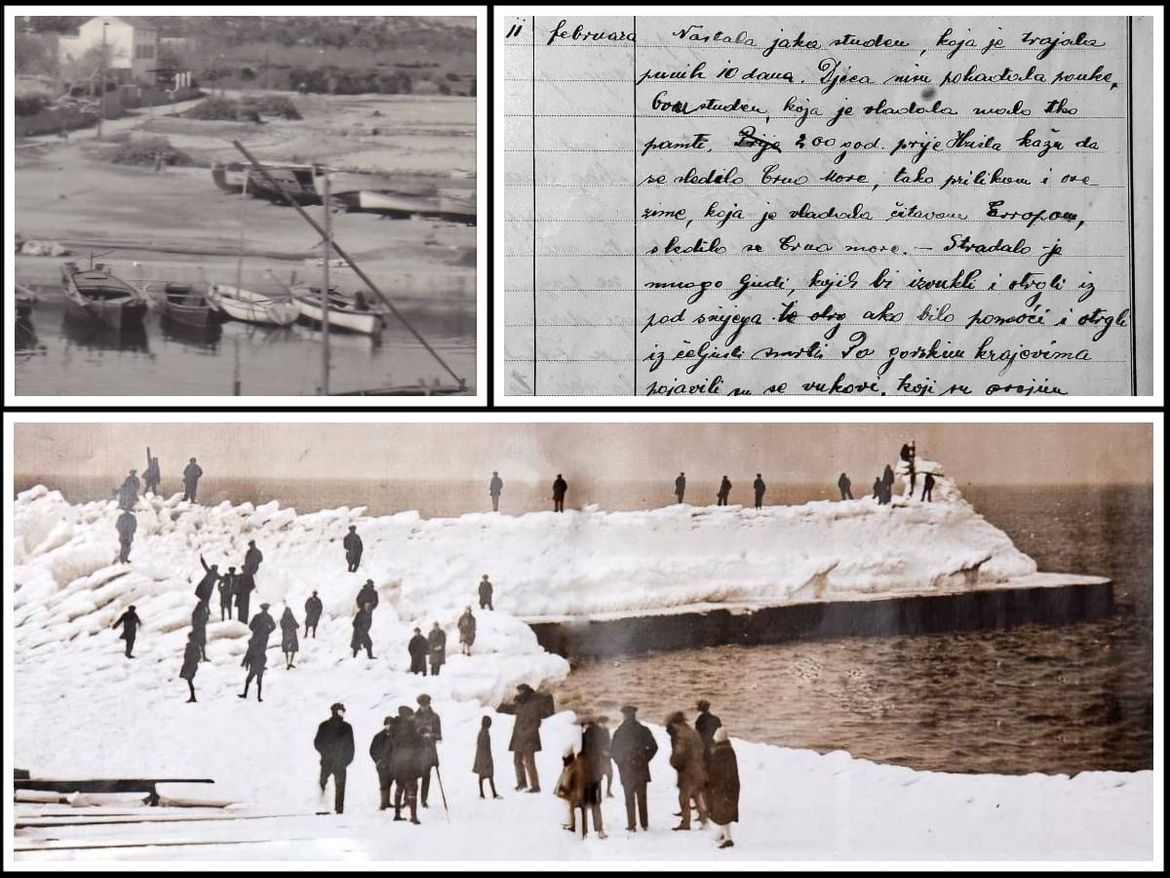 11 februara Nastala jaka studen, koja je trajala
punih 10 dana. Djeca nisu pohadjala pouke,
Ovu studen, koja je vladala malo tko
pamti. Prije 200 god. prije Hrista kažu da
se sledilo Crno More, tako prilikom i ove
zime, koja je vladala čitavom Evropom,
sledilo se Crno more. — Stradalo je
mnogo ljudi, kojih bi izvukli i otrgli iz
pod snijega to otrg ako bilo pomoći i otrgli
iz čeljusti smrti Po gorskim krajevima
pojavili su se vukovi, koji su svojim